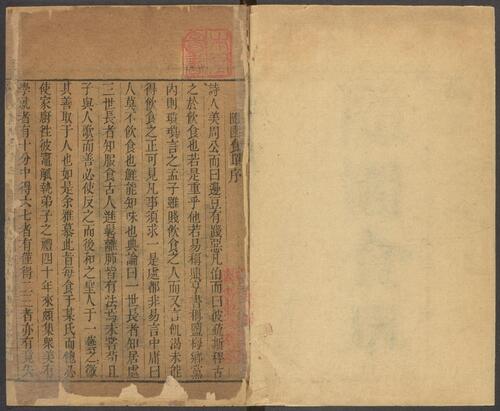 隨園食單序
詩人美周公而曰籩豆有踐惡凡伯而曰彼疏斯稗古
之於飲食也若是重乎他若易稱鼎亨書稱鹽梅鄉黨
內則瑣瑣言之孟子雖賤飲食之人而又言飢渴未能
得飲食之正可見凡事須求一是處都非易言中庸曰
人莫不飲食也鮮能知味也典論曰一世長者知居處
三世長者知服食古人進鬐離肺皆有法焉未嘗苟且
子與人歌而善必使反之而後和之聖人于一藝之微
其善取于人也如是余雅慕此旨每食于某氏而飽必
使家廚往彼竈觚執弟子之禮四十年來頗集衆美有
學就者有十分中得六七者有僅得二三者亦有竟失